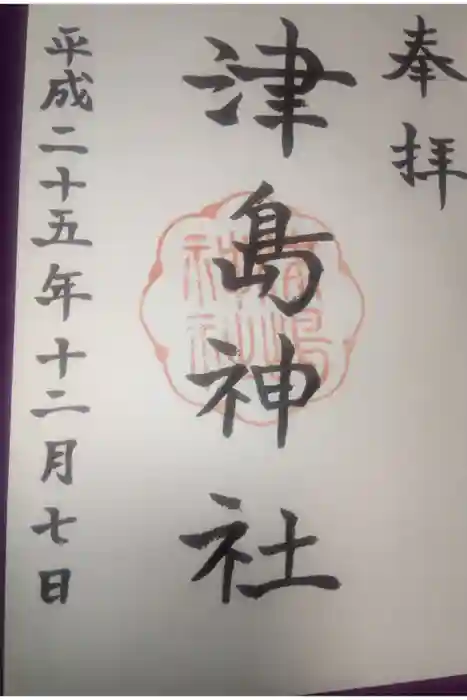 奉拝
津島神社
平成二十五年十二月七日